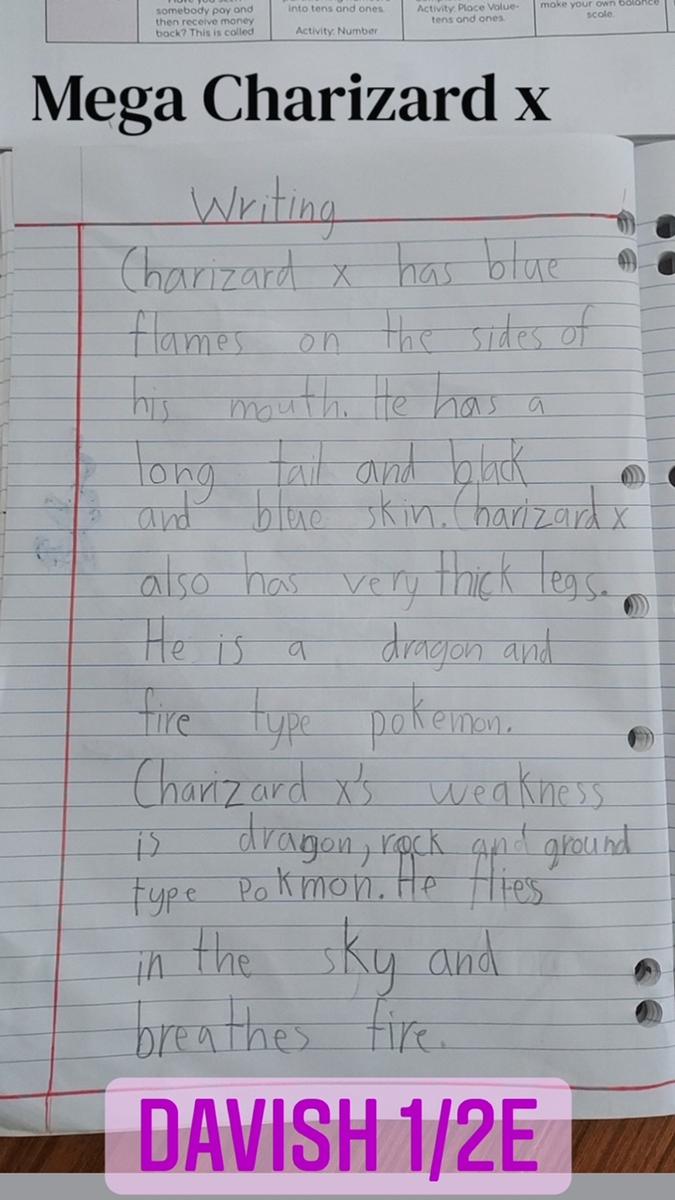 somebody pay and
then receive money
back? This is called
into tens and ones.
Activity: Number
Activity: Place Value-
tens and ones.
make your own balance
scale.
Mega Charizard x
Writing
Charizard x has blue
flames on the sides of
his mouth. He has a
long tail and black
and blue skin. Charizard x
also has very thick legs.
He is a dragon and
fire type pokemon.
Charizard x's weakness
is dragon, rock and ground
type Pokmon. He flies
in the sky and
breathes fire.
DAVISH 1/2E